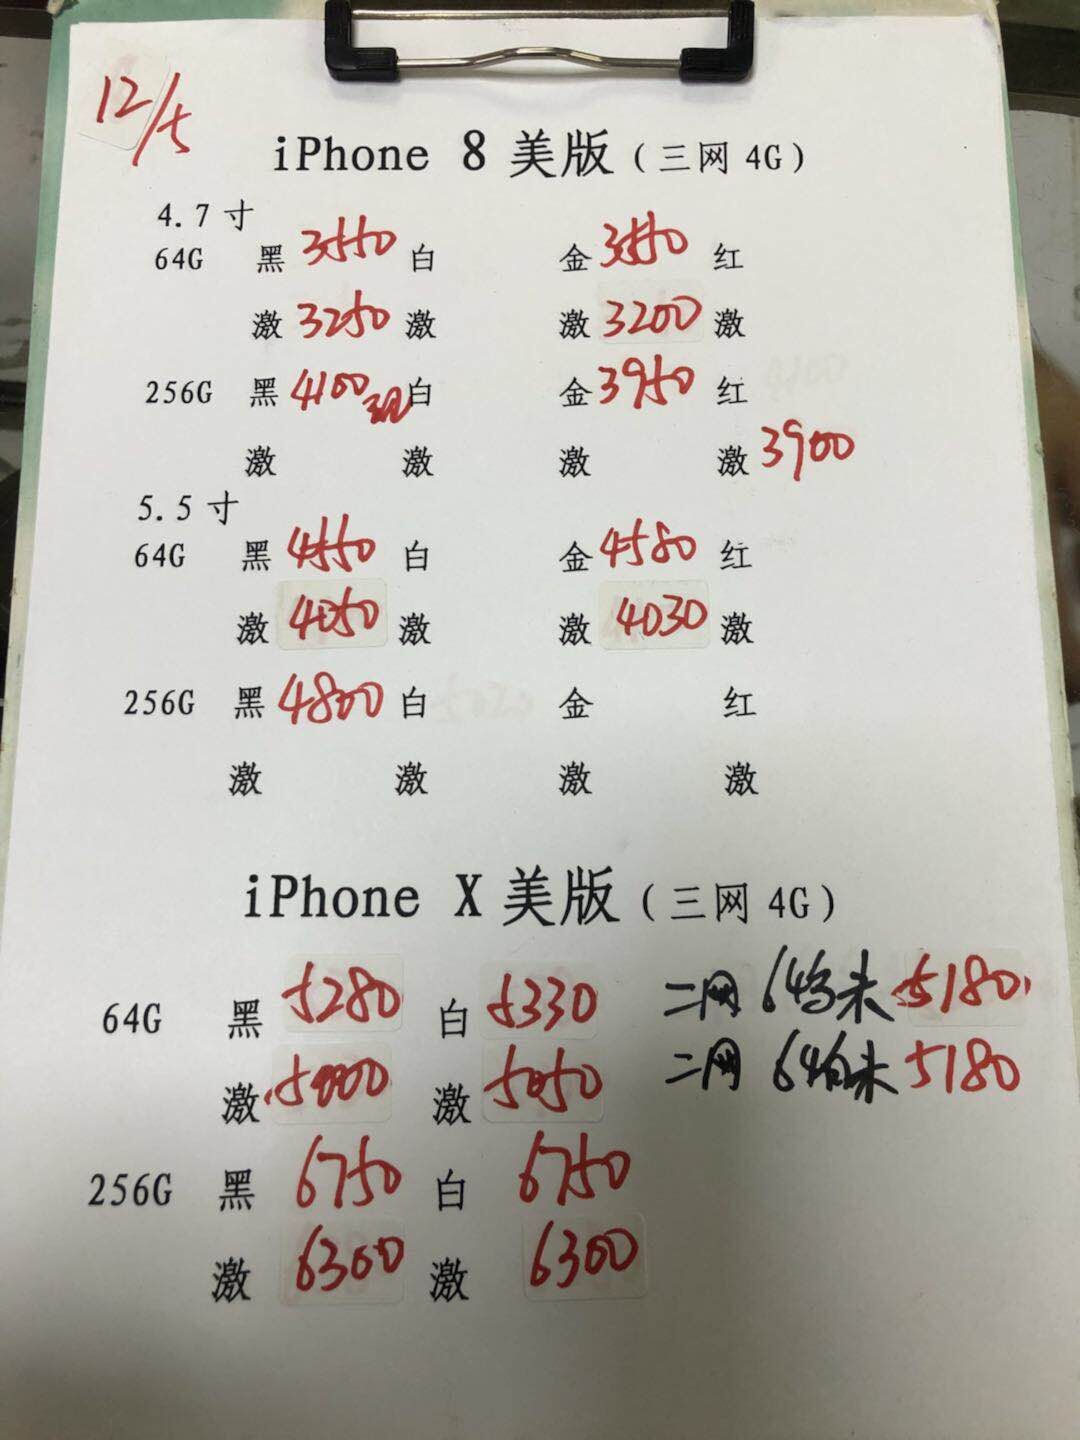 12/5
iPhone 8 美版（三网 4G）
4.7 寸
64G 黑 3550 白 金 3550 红
激 3250 激 激 3200 激
256G 黑 4100 现 白 金 3950 红
激 激 激 激 3900
5.5 寸
64G 黑 4550 白 金 4580 红
激 4050 激 激 4030 激
256G 黑 4800 白 金 红
激 激 激 激
iPhone X 美版（三网 4G）
64G 黑 5280 白 5330 二网 64 未 5180
激 5000 激 5050 二网 64 未 5180
256G 黑 6750 白 6750
激 6300 激 6300